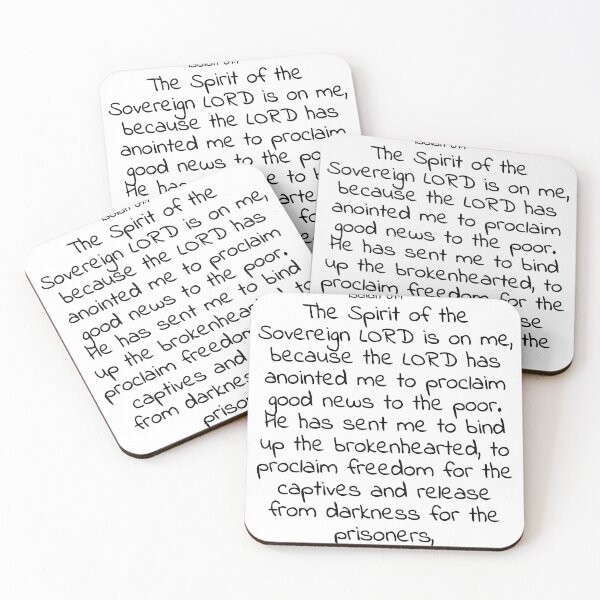 Isaiah 61:1
The Spirit of the
Sovereign LORD is on me,
because the LORD has
anointed me to proclaim
good news to the
He has
Isaiah 61:1
The Spirit of the
Sovereign LORD is on me,
because the LORD has
anointed me to proclaim
good news to the poor.
He has sent me to bind
up the brokenhearted, to
proclaim freedom for the
the
Isaiah 61:1
The Spirit of the
Sovereign LORD is on me,
because the LORD has
anointed me to proclaim
good news to the poor.
He has sent me to bind
up the
proclaim
captives and
from darkness
Isaiah 61:1
The Spirit of the
Sovereign LORD is on me,
because the LORD has
anointed me to proclaim
good news to the poor.
He has sent me to bind
up the brokenhearted, to
proclaim freedom for the
captives and release
from darkness for the
prisoners,